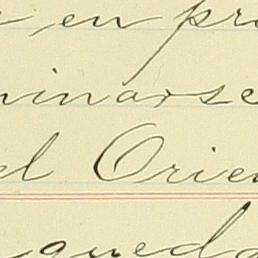 en pr
minarse
el Orien
queda